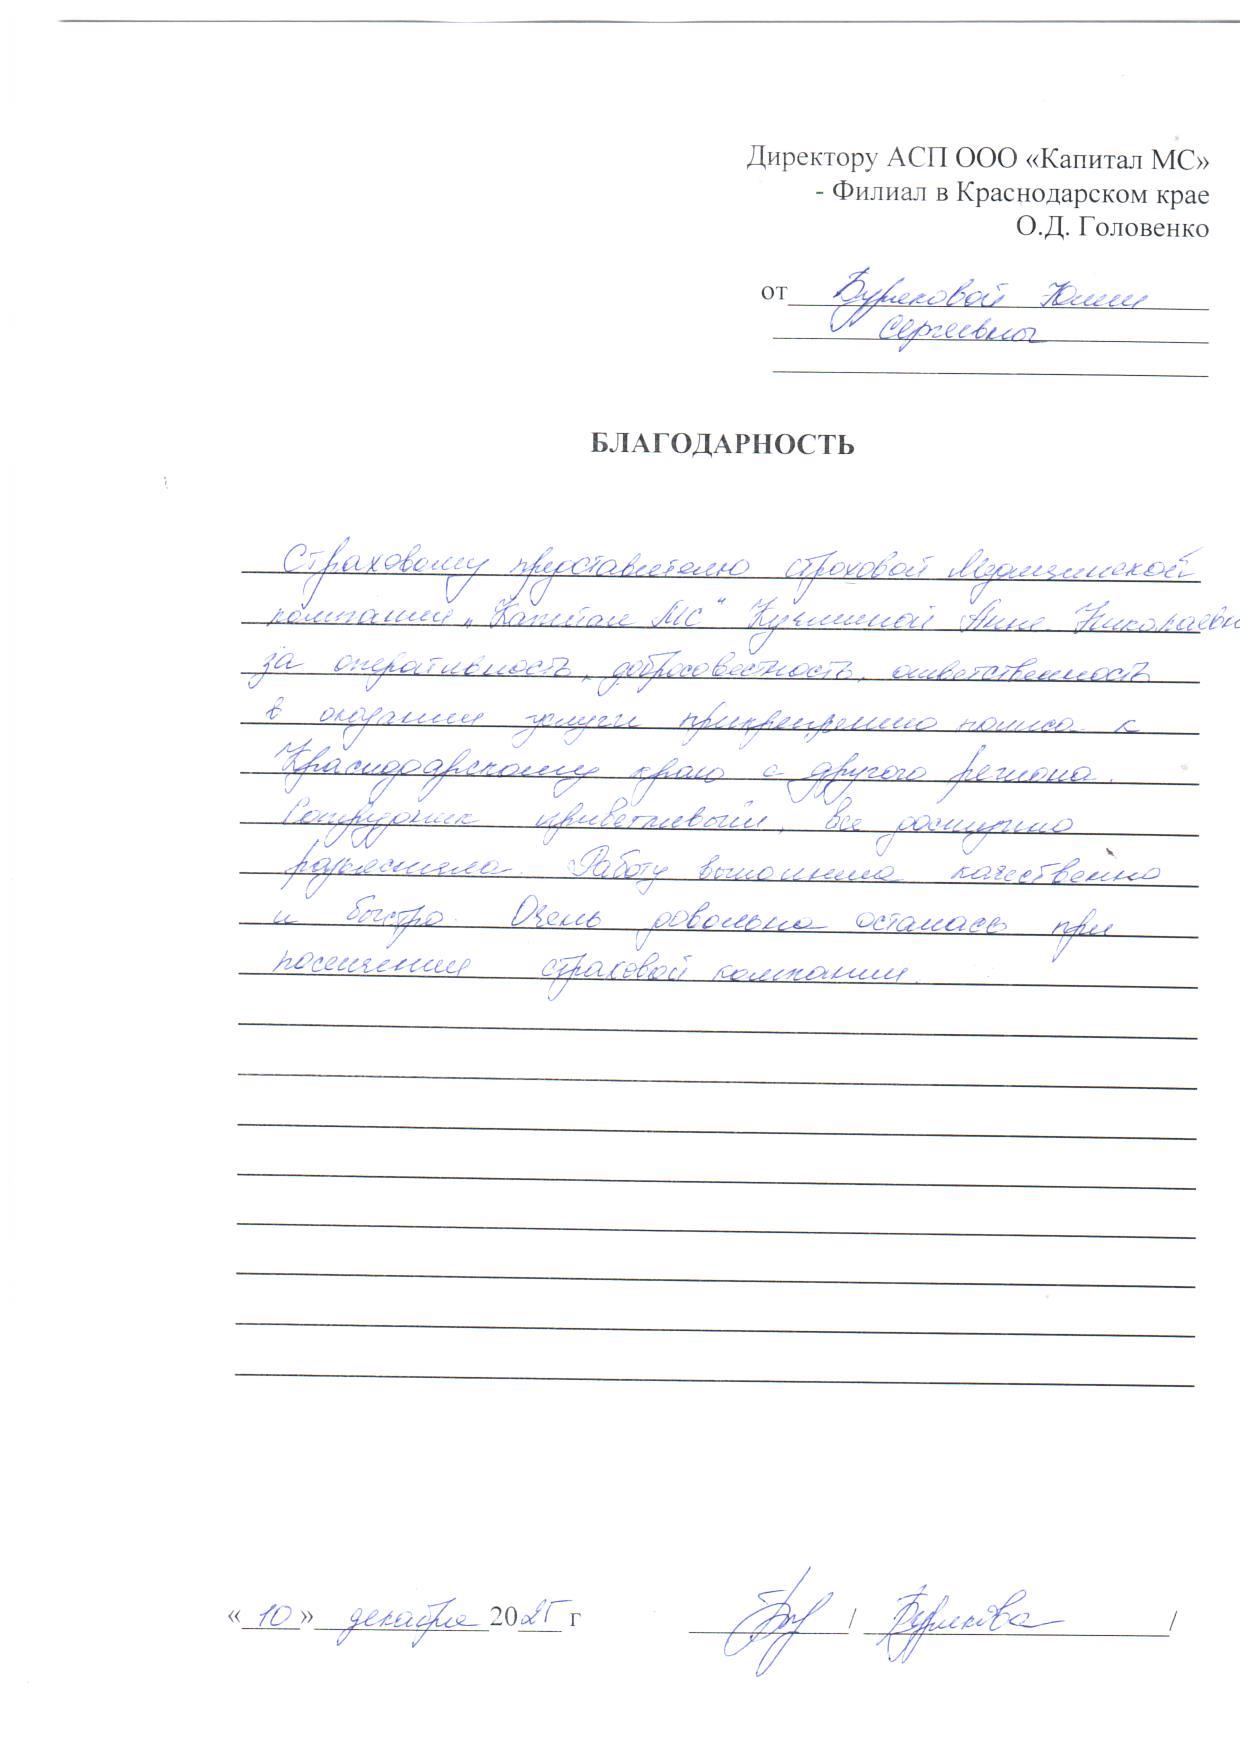 Директору АСП ООО «Капитал МС»
- Филиал в Краснодарском крае
О.Д. Головенко
от Буряковой Юлии
Сергеевны
БЛАГОДАРНОСТЬ
Страховому представителю страховой медицинской
компании „Капитал МС" Анне Николаевн
за оперативность, добросовестность, ответственность
в оказании услуги прикреплению полиса к
Краснодарскому краю с другого региона.
Сотрудник приветливый, все доступно
разъяснила. Работу выполнила качественно
и быстро. Очень довольна осталась при
посещении страховой компании.
«10» декабря 2025 г / Бурякова /